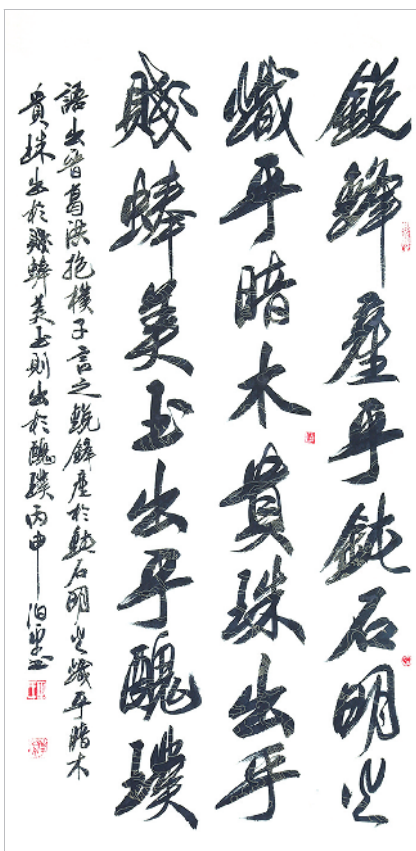 鋭鋒産乎鈍石明火
熾乎暗木貴珠出乎
賤蜯美玉出乎醜璞
語出晉葛洪抱樸子言之鋭鋒産於鈍石明火熾乎暗木
貴珠出於賤蜯美玉則出於醜璞丙申